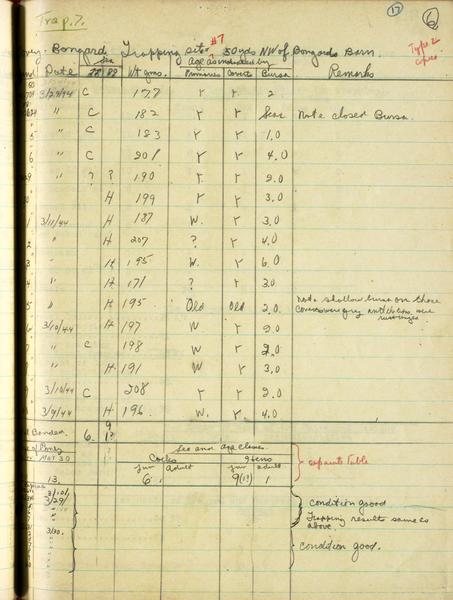 Trap. 7.
17
6
#7
Bongard. Trapping site 50 yds NW of Bongards Barn.
Type 2
Sex Age as indicated by
Date ♂♂ ♀♀ Wt gms. Primaries Coverts Bursa Remarks
3/29/44 C 177 r r 2
" C 182 r r Scar Note closed Bursa.
" C 183 r r 1.0
" C 201 r r 4.0
" ? ? 190 r r 2.0
H 199 r r 3.0
3/11/44 H 187 W. r 3.0
" H 207 ? r 4.0
" H 195 W. r 6.0
" H 171 ? r 3.0
" H 195 Old Old 2.0 Note shallow bursa on those
3/10/44 H 197 W r 2.0
" C 198 W r 2.0
" H 191 W r 3.0
3/10/44 C 208 r r 2.0
3/9/44 H 196 W. r 4.0
Banded. 6 9
1?
Sex and age classes
Mar 30 Cocks Hens
juv adult juv adult separate table
13. 6 9(1?) 1
3/10/
3/29/ condition good
" Trapping results same as
above.
3/30. condition good.